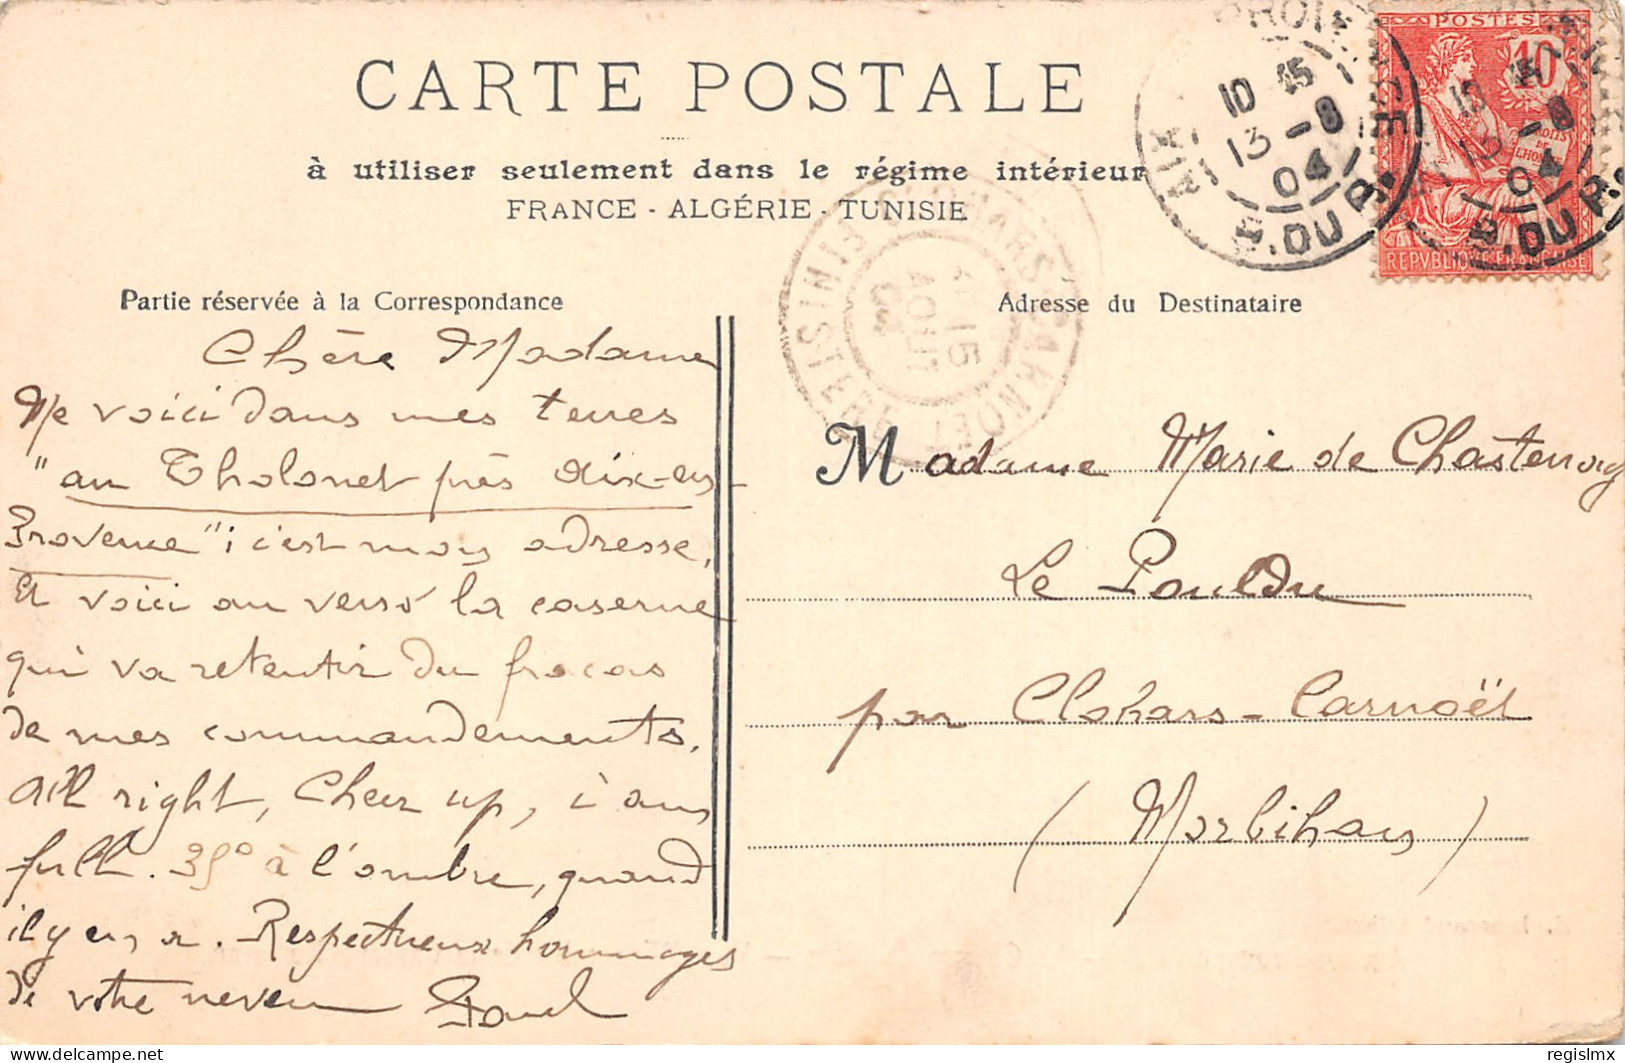 CARTE POSTALE
à utiliser seulement dans le régime intérieur
FRANCE - ALGÉRIE - TUNISIE
Partie réservée à la Correspondance
Chère Madame
Me voici dans mes terres
"au Tholonet près Aix-en-
Provence"; c'est mon adresse.
Et voici au verso la caserne
qui va retentir du fracas
de mes commandements.
All right, Cheer up,
full. 35° à l'ombre, quand
il y en a. Respectueux hommages
de votre neveu Paul
Adresse du Destinataire
Madame Marie de Chastenay
Le Pouldu
par Clohars-Carnoët
(Morbihan)
POSTES
10
DROITS
DE
L'HOMME
REPVBLIQVE FRANÇAISE
AIX EN PROVENCE
10 45
13 -8
04
B. DU R.
10 45
13 -8
04
B. DU R.
CLOHARS CARNOET
15
AOUT
04
FINISTERE
regislmx